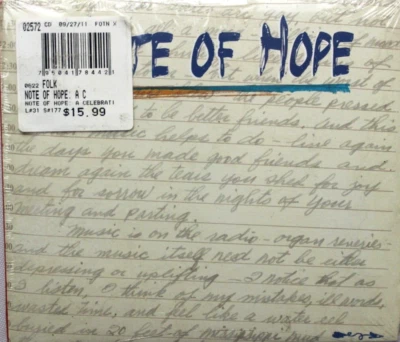 02572 CD 09/27/11 FOTN
7 95041 78442 1
0622 FOLK
NOTE OF HOPE: A C
NOTE OF HOPE: A CELEBRATI
$15.99
TE OF HOPE
people pressed
to be better friends. and this
helps to do - live again
the days you made good friends and
dream again the tears you shed for joy
and for sorrow in the nights of your
meeting and parting.
Music is on the radio - organ reveries -
and the music itself need not be either
depressing or uplifting. I notice that as
I listen, I think of my mistakes, ill words,
wasted time, and feel like a water
buried in 20 feet of mississippi mud